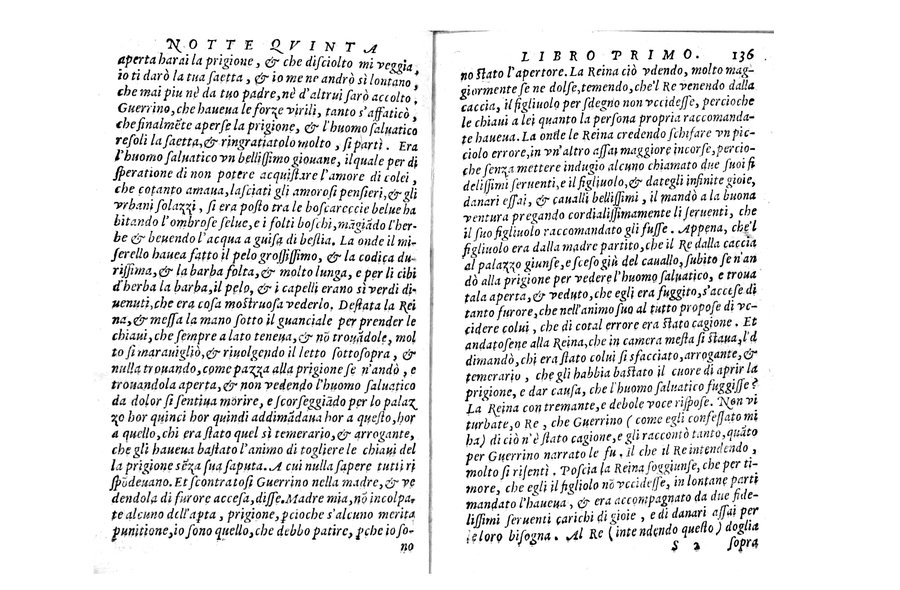 NOTTE QVINTA
aperta harai la prigione, & che disciolto mi veggia,
io ti darò la tua saetta, & io me ne andrò sì lontano,
che mai piu nè da tuo padre, nè d'altrui sarò accolto.
Guerrino, che haueua le forze virili, tanto s'affaticò,
che finalmẽte aperse la prigione, & l'huomo saluatico
resoli la saetta, & ringratiatolo molto, si partì. Era
l'huomo saluatico vn bellissimo giouane, il quale per di
speratione di non potere acquistare l'amore di colei,
che cotanto amaua, lasciati gli amorosi pensieri, & gli
vrbani solazzi, si era posto tra le boscareccie belue ha
bitando l'ombrose selue, e i folti boschi, mãgiãdo l'her-
be & beuendo l'acqua a guisa di bestia. La onde il mi-
serello hauea fatto il pelo grossissimo, & la codica du-
rissima, & la barba folta, & molto lunga, e per li cibi
d'herba la barba, il pelo, & i capelli erano sì verdi di-
uenuti, che era cosa mostruosa vederlo. Destata la Rei
na, & messa la mano sotto il guanciale per prender le
chiaui, che sempre a lato teneua, & nò trouãdole, mol
to si marauigliò, & riuolgendo il letto sottosopra, &
nulla trouando, come pazza alla prigione se n'andò, e
trouandola aperta, & non vedendo l'huomo saluatico
da dolor si sentiua morire, e scorseggiãdo per lo palaz
zo hor quinci hor quindi addimãdaua hor a questo, hor
a quello, chi era stato quel sì temerario, & arrogante,
che gli haueua bastato l'animo di togliere le chiaui del
la prigione sẽza sua saputa. A cui nulla sapere tutti ri
spõdeuano. Et scontratosi Guerrino nella madre, & ve
dendola di furore accesa, disse. Madre mia, nò incolpa-
te alcuno dell'apta, prigione, pcioche s'alcuno merita
punitione, io sono quello, che debbo patire, pche io so-
no
LIBRO PRIMO. 136
no stato l'apertore. La Reina ciò vdendo, molto mag-
giormente se ne dolse, temendo, che'l Re venendo dalla
caccia, il figliuolo per sdegno non vccidesse, percioche
le chiaui a lei quanto la persona propria raccomanda-
te haueua. La onde le Reina credendo schifare vn pic-
ciolo errore, in vn'altro assai maggiore incorse, percio-
che senza mettere indugio alcuno chiamato due suoi fi
delissimi seruenti, e il figliuolo, & dategli infinite gioie,
danari essai, & caualli bellissimi, il mandò a la buona
ventura pregando cordialissimamente li seruenti, che
il suo figliuolo raccomandato gli fusse. Appena, che'l
figliuolo era dalla madre partito, che il Re dalla caccia
al palazzo giunse, e sceso giù del cauallo, subito se n'an
dò alla prigione per vedere l'huomo saluatico, e troua
tala aperta, & veduto, che egli era fuggito, s'accese di
tanto furore, che nell'animo suo al tutto propose di vc-
cidere colui, che di cotal errore era stato cagione. Et
andatosene alla Reina, che in camera mesta si staua, l'd
dimandò, chi era stato colui sì sfacciato, arrogante, &
temerario, che gli habbia bastato il cuore di aprir la
prigione, e dar causa, che l'huomo saluatico fuggisse?
La Reina con tremante, e debole voce rispose. Non vi
turbate, o Re, che Guerrino (come egli confessato mi
ha) di ciò n'è stato cagione, e gli raccontò tanto, quãto
per Guerrino narrato le fu. il che il Re intendendo,
molto si risentì. Poscia la Reina soggiunse, che per ti-
more, che egli il figliolo nò vccidesse, in lontane parti
mandato l'haueua, & era accompagnato da due fide-
lissimi seruenti carichi di gioie, e di danari assai per
le loro bisogna. Al Re (intendendo questo) doglia
S 2 sopra